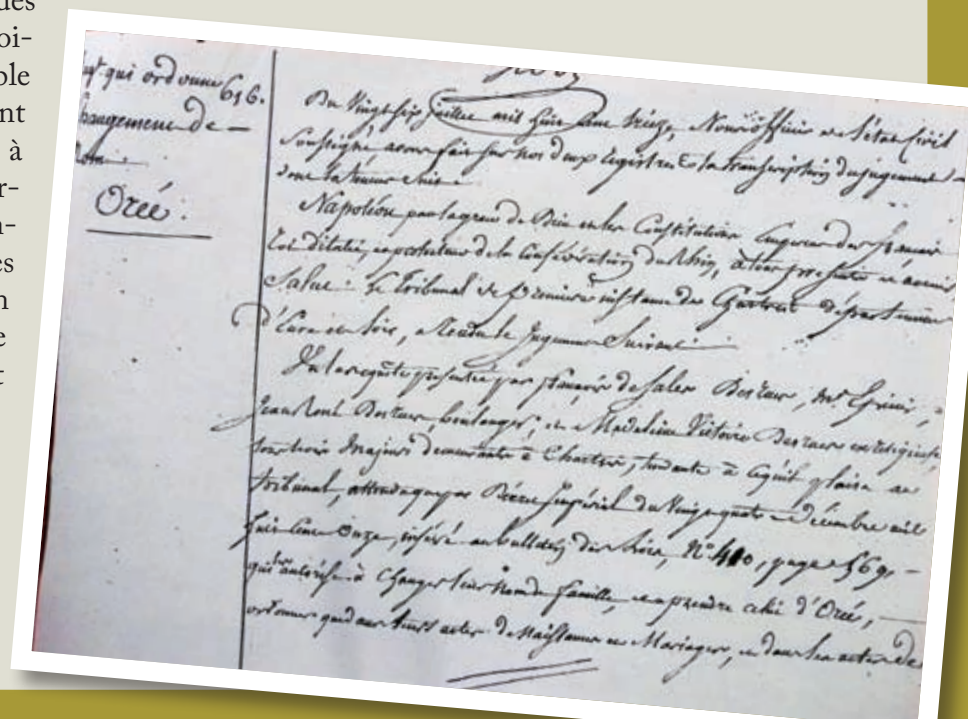 des
oi-
ble
ent
à
r-
n-
es
n
e
t
qui ordonne 616.
changement de —
nom.
Oreé.
Du Vingt six juillet mil huit Cent treize, Nous officier de l'état Civil
Soussigné avons fait sur nos deux registres la transcription du jugement —
dont la teneur Suit.
Napoléon par la grace de Dieu et les Constitutions Empereur des français
Roi d'italie, protecteur de la Confédération du Rhin, à tous présents et à venir
Salut. Le Tribunal de premiere instance de Chartres département
d'Eure et Loir, a Rendu le Jugement Suivant.
Sur la requête présentée par françois de Sales, Md. Epicier,
Jean René, boulanger, et Madelaine Victoire ex religieuse,
tous trois Majeurs demeurants à Chartres, tendante à ce qu'il plaise au
tribunal, attendu que par Décret Impérial du Vingt quatre Décembre mil
huit Cent Onze, inséré au bulletin des Loix, N° 410, page 569, —
qui les autorise à Changer leur Nom de famille, et à prendre celui d'Oreé, —
ordonner que dans leurs actes de Naissance et Mariages, et dans les actes de